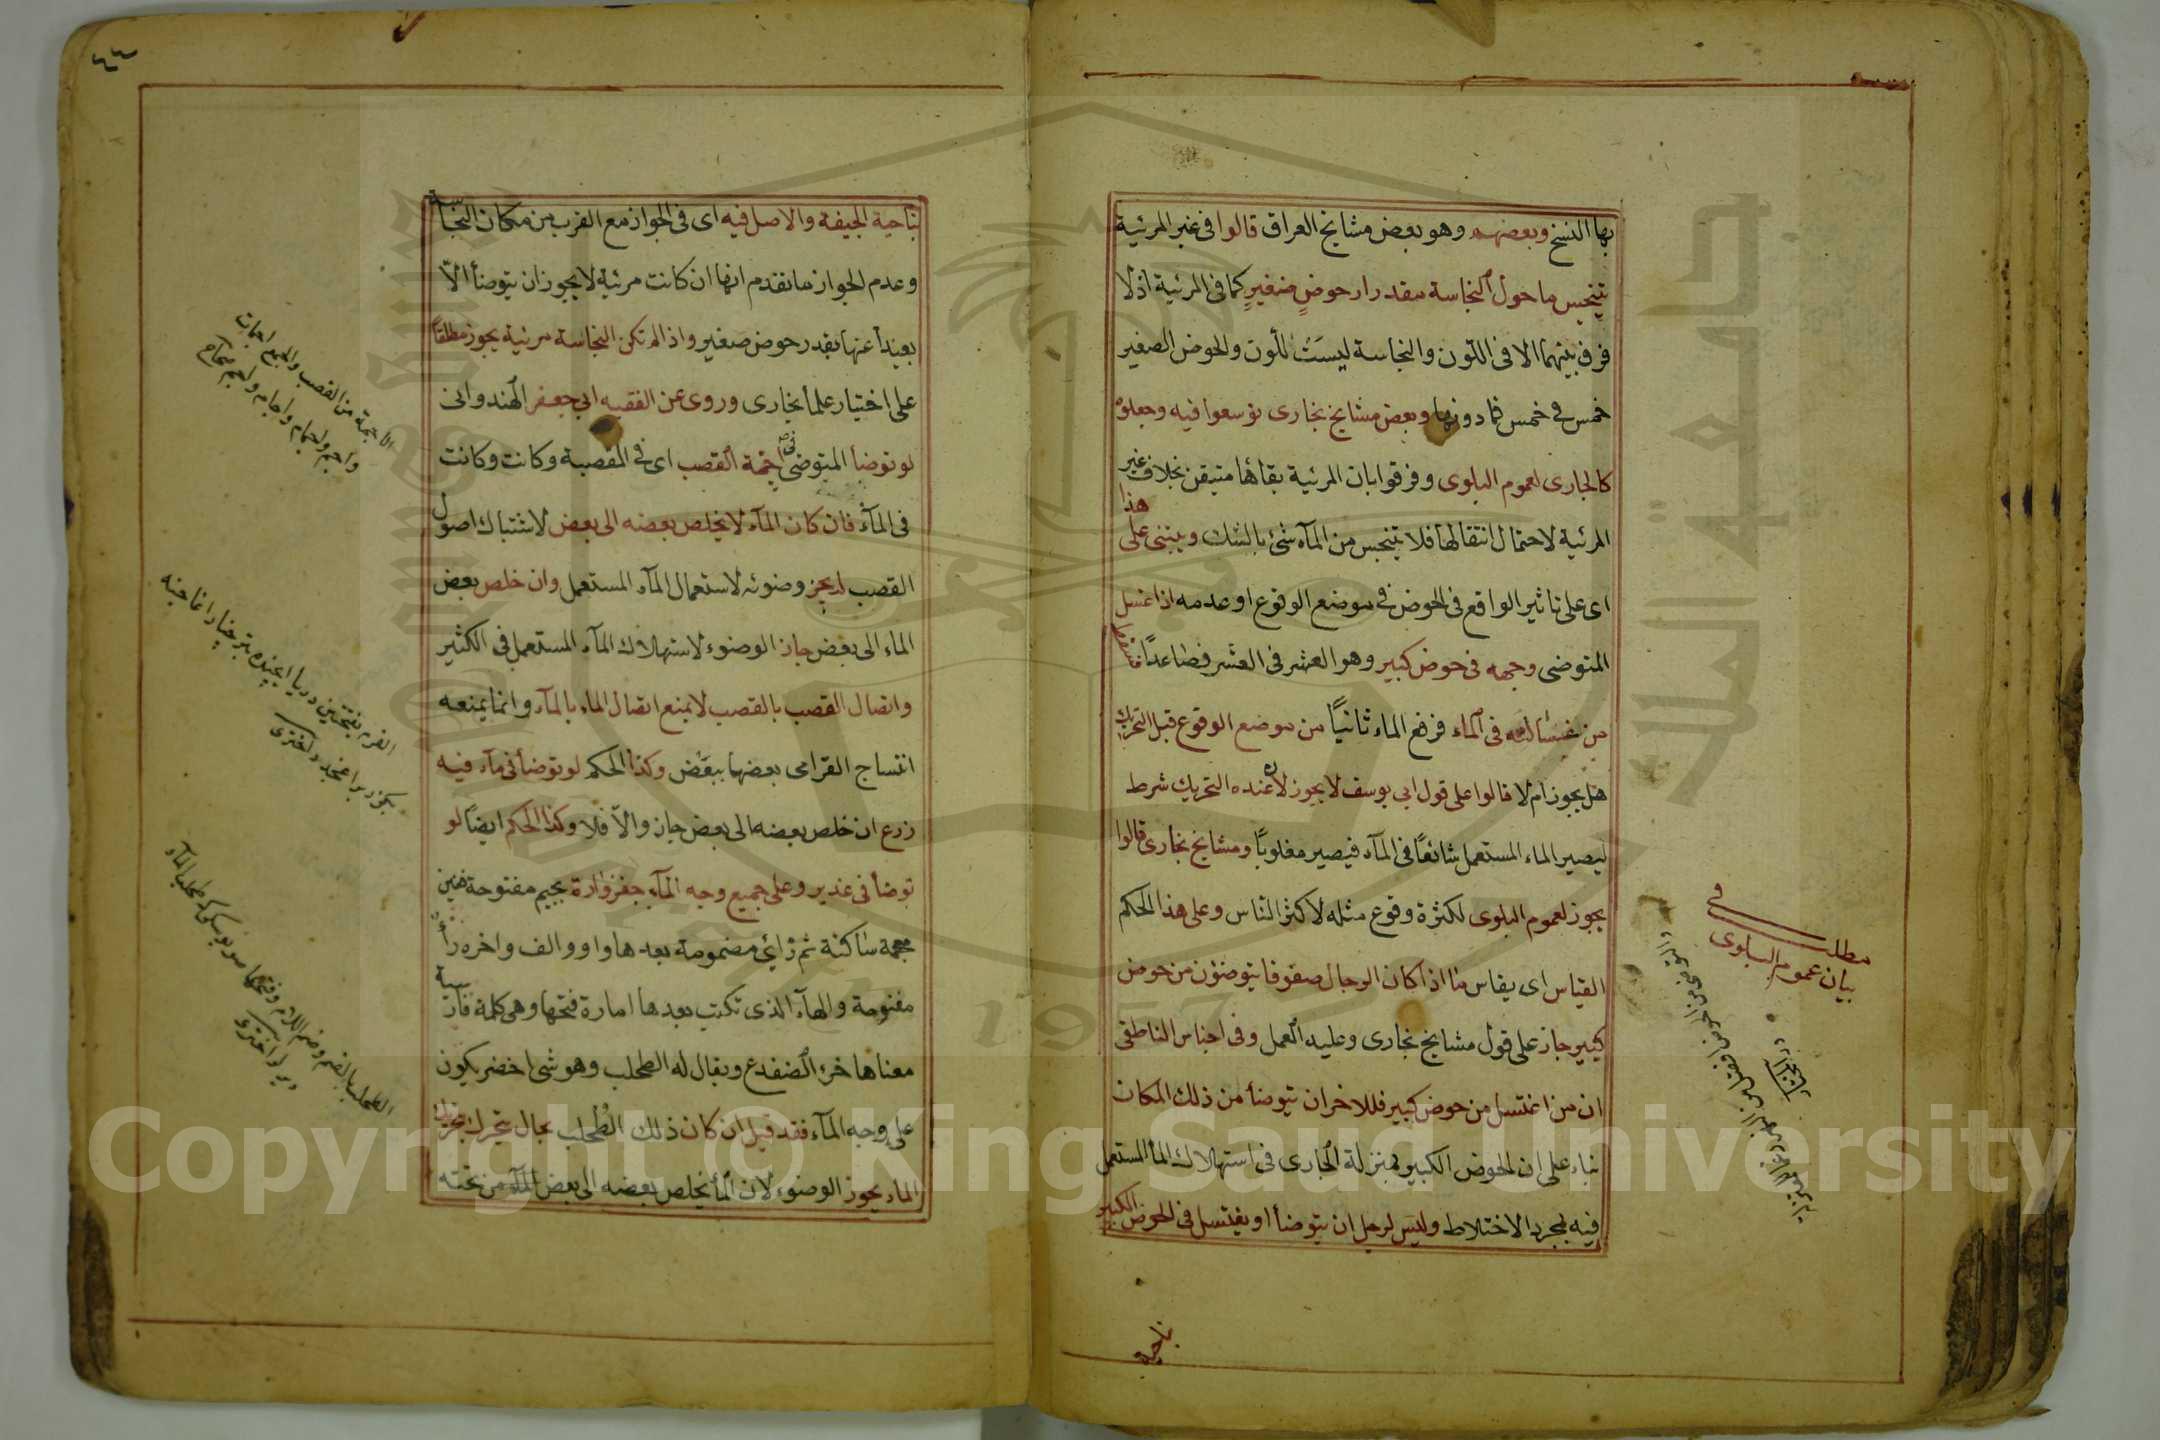 بها النسخ وبعضهم وهو بعض مشايخ العراق قالوا فى غير المرئية
يتنجس ما حول النجاسة مقدار حوض صغير كما فى المرئية اذ لا
فرق بينهما الا فى اللون والنجاسة ليست للون والحوض الصغير
خمس فى خمس فما دونها وبعض مشايخ بخارى توسعوا فيه وجعلوه
كالجارى لعموم البلوى وفرقوا بان المرئية بقاءها متيقن بخلاف غير
المرئية لاحتمال انتقالها فلا يتنجس من المآء شئ بالشك ويبتنى على هذا
اى على تاثير الواقع فى الحوض فى موضع الوقوع او عدمه اذا غسل
المتوضى وجهه فى حوض كبير وهو العشر فى العشر فصاعدا فسقط
من غسالته فى الماء فرفع الماء ثانيًا من موضع الوقوع قبل التحريك
هل يجوز ام لا قالوا على قول ابى يوسف لا يجوز لان عنده التحريك شرط
ليصير الماء المستعمل شائعًا فى المآء فيصير مغلوبًا ومشايخ بخارى قالوا
يجوز لعموم البلوى لكثرة وقوع مثله لاكثر الناس وعلى هذا الحكم
القياس اى يقاس ما اذا كان الرجال صفوفا يتوضؤن من حوض
كبير جاز على قول مشايخ بخارى وعليه العمل وفى اجناس الناطقى
ان من اغتسل من حوض كبير فللاخر ان يتوضأ من ذلك المكان
بناء على ان الحوض الكبير بمنزلة الجارى فى استهلاك الماء المستعمل
فيه بمجرد الاختلاط وليس لرجل ان يتوضأ او يغتسل فى الحوض الكبير
مطلب فى
بيان عموم البلوى
والتوضى من الحوض افضل من النهر
بناحية
٤٣
بناحية الجيفة والاصل فيه اى فى الجواز مع القرب من مكان النجاسة
وعدم الجواز ما تقدم انها ان كانت مرئية لا يجوز ان يتوضأ الا
بعيداً عنها بقدر حوض صغير واذا لم تكن النجاسة مرئية يجوز مطلقاً
على اختيار علماء بخارى وروى عن الفقيه ابى جعفر الهندوانى
لو توضأ المتوضى فى اجمة القصب اى فى المقصبة وكانت وكانت
فى المآء فان كان المآء لا يخلص بعضه الى بعض لاشتباك اصول
القصب لم يجز وضوئه لاستعمال المآء المستعمل وان خلص بعض
الماء الى بعض جاز الوضوء لاستهلاك المآء المستعمل فى الكثير
واتصال القصب بالقصب لا يمنع اتصال الماء بالمآء وانما يمنعه
انتساج القرامى بعضها ببعض وكذا الحكم لو توضأ فى مآء فيه
زرع ان خلص بعضه الى بعض جاز والا فلا وكذا الحكم ايضًا لو
توضأ فى غدير وعلى جميع وجه المآء جغزوارة بجيم مفتوحة فغين
معجمة ساكنة ثم زاى مضمومة بعدها واو والف واخره رأ
مفتوحة والهآء الذى تكتب بعدها امارة فتحها وهى كلمة فارسية
معناها خرء الضفدع ويقال له الطحلب وهو شئ اخضر يكون
على وجه المآء فقد قيل ان كان ذلك الطحلب بحال يتحرك بتحريك
الماء يجوز الوضوء لان الماء يخلص بعضه الى بعض المآء من تحته
الاجمة من القصب والجمع اجمات
واجم واجام
الطحلب بالضم وضم اللام وفتحها
Copyright © King Saud University
جامعة الملك سعود
1957